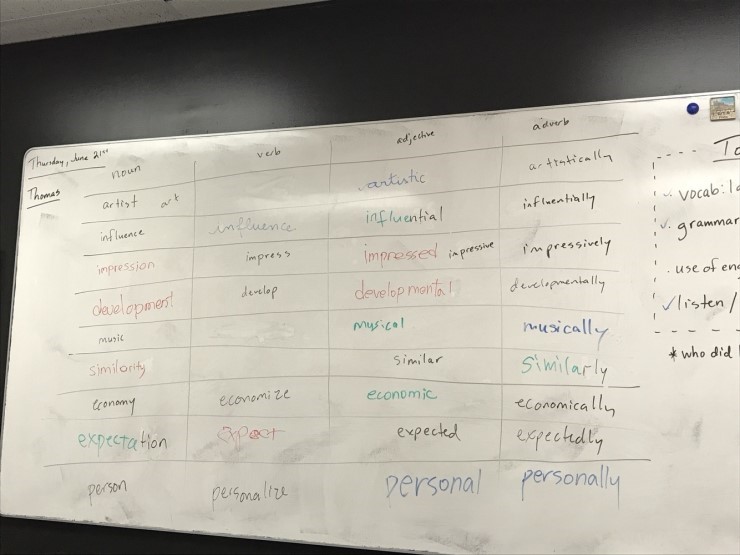 Thursday, June 21st
Thomas
noun verb adjective adverb
artist art artistic artistically
influence influence influential influentially
impression impress impressed impressive impressively
development develop developmental developmentally
music musical musically
similarity similar similarly
economy economize economic economically
expectation expect expected expectedly
person personalize personal personally
✓ vocab
✓ grammar
. use of
✓ listen /
* who did